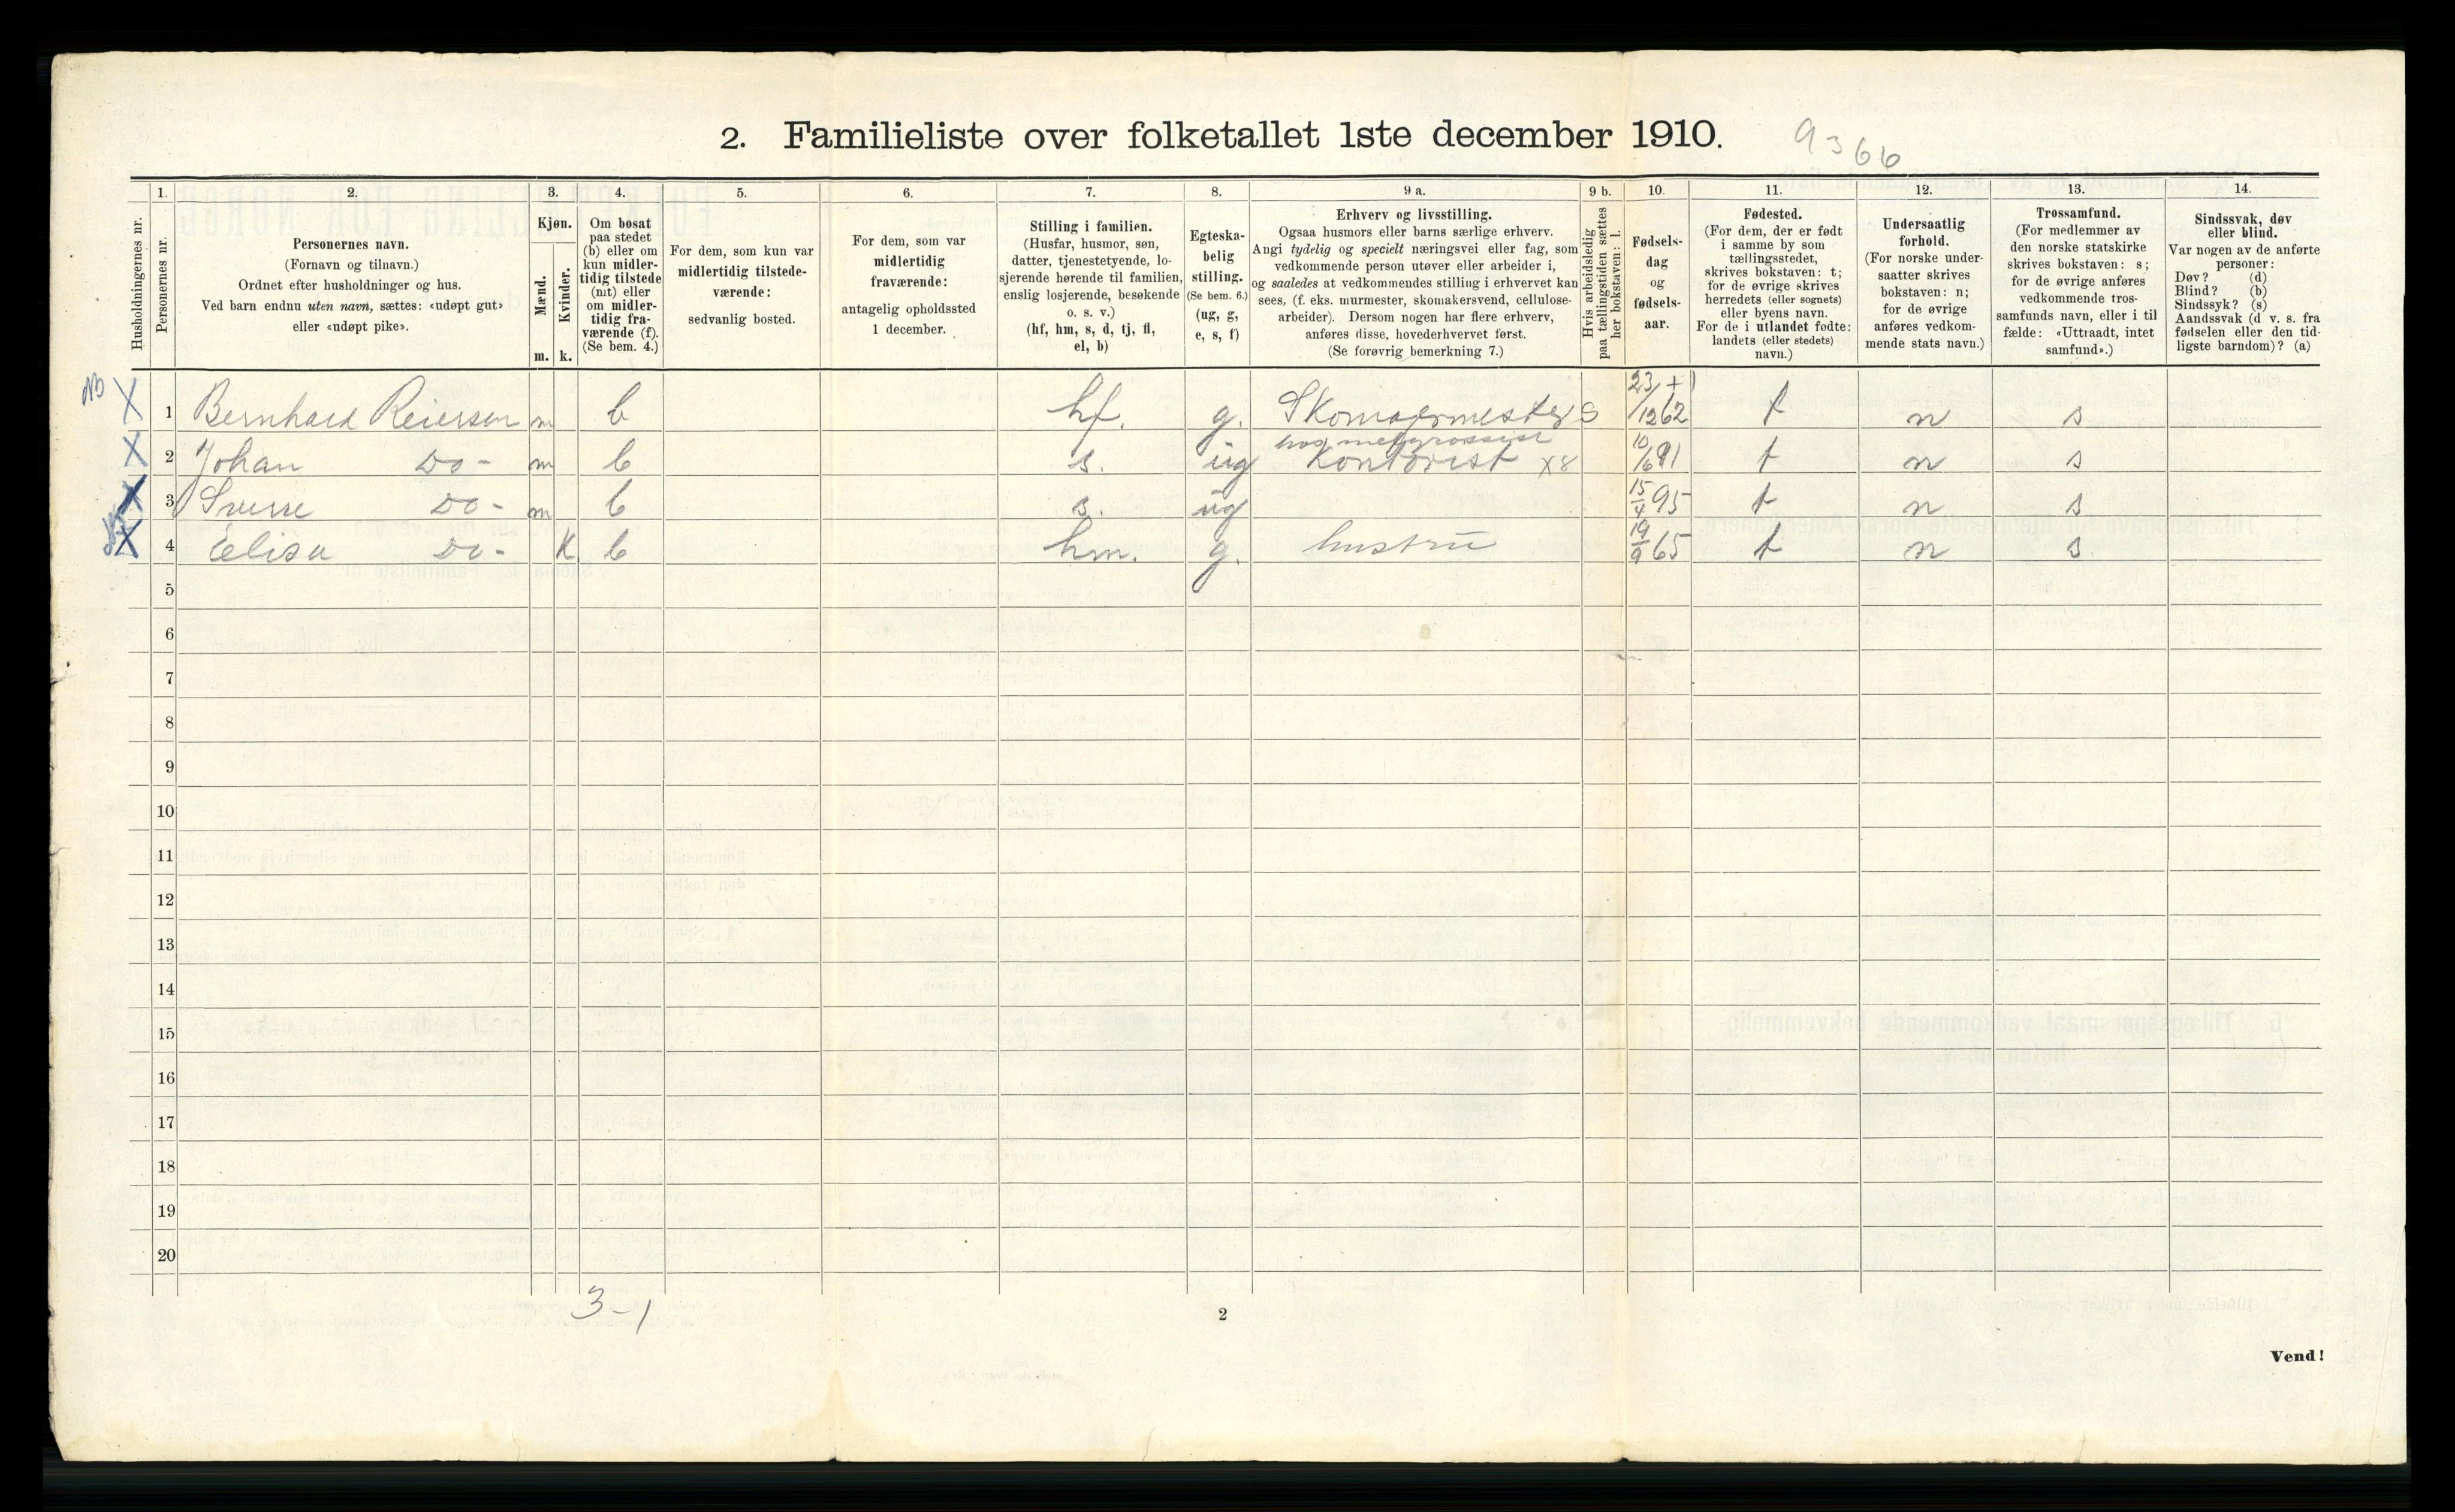 2. Familieliste over folketallet 1ste december 1910.
9366
1. 2. 3. 4. 5. 6. 7. 8. 9 a. 9 b. 10. 11. 12. 13. 14.
Husholdningernes nr.
Personernes nr.
Personernes navn.
(Fornavn og tilnavn.)
Ordnet efter husholdninger og hus.
Ved barn endnu uten navn, sættes: «udøpt gut»
eller «udøpt pike».
Kjøn.
Mænd.
Kvinder.
m. k.
Om bosat
paa stedet
(b) eller om
kun midler-
tidig tilstede
(mt) eller
om midler-
tidig fra-
værende (f).
(Se bem. 4.)
For dem, som kun var
midlertidig tilstede-
værende:
sedvanlig bosted.
For dem, som var
midlertidig
fraværende:
antagelig opholdssted
1 december.
Stilling i familien.
(Husfar, husmor, søn,
datter, tjenestetyende, lo-
sjerende hørende til familien,
enslig losjerende, besøkende
o. s. v.)
(hf, hm, s, d, tj, fl,
el, b)
Egteska-
belig
stilling.
(Se bem. 6.)
(ug, g,
e, s, f)
Erhverv og livsstilling.
Ogsaa husmors eller barns særlige erhverv.
Angi tydelig og specielt næringsvei eller fag, som
vedkommende person utøver eller arbeider i,
og saaledes at vedkommendes stilling i erhvervet kan
sees, (f. eks. murmester, skomakersvend, cellulose-
arbeider). Dersom nogen har flere erhverv,
anføres disse, hovederhvervet først.
(Se forøvrig bemerkning 7.)
Hvis arbeidsledig
paa tællingstiden sættes
her bokstaven: l.
Fødsels-
dag
og
fødsels-
aar.
Fødested.
(For dem, der er født
i samme by som
tællingsstedet,
skrives bokstaven: t;
for de øvrige skrives
herredets (eller sognets)
eller byens navn.
For de i utlandet fødte:
landets (eller stedets)
navn.)
Undersaatlig
forhold.
(For norske under-
saatter skrives
bokstaven: n;
for de øvrige
anføres vedkom-
mende stats navn.)
Trossamfund.
(For medlemmer av
den norske statskirke
skrives bokstaven: s;
for de øvrige anføres
vedkommende tros-
samfunds navn, eller i til
fælde: «Uttraadt, intet
samfund».)
Sindssvak, døv
eller blind.
Var nogen av de anførte
personer:
Døv? (d)
Blind? (b)
Sindssyk? (s)
Aandssvak (d v. s. fra
fødselen eller den tid-
ligste barndom)? (a)
X 1 Bernhard Reiersen m b hf. g. Skomagermester S 23/12 62 t n s
hos
X 2 Johan Do - m b s. ug Kontorist x8 10/6 91 t n s
X 3 Sverre Do - m b s. ug 15/4 95 t n s
X 4 Elisa Do - K b hm. g. hustru 19/9 65 t n s.
5
6
7
8
9
10
11
12
13
14
15
16
17
18
19
20
3-1
2
Vend!